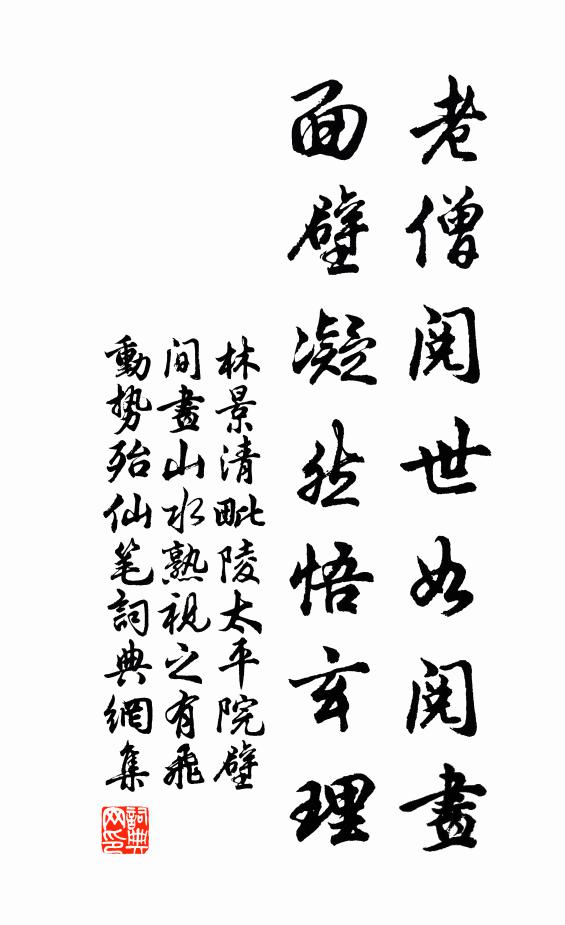 老僧閱世如閱畫
面壁凝然悟玄理
林景清毗陵太平院壁
間畫山水熟視之有飛
動势殆仙笔詞典網集
詞典
网印